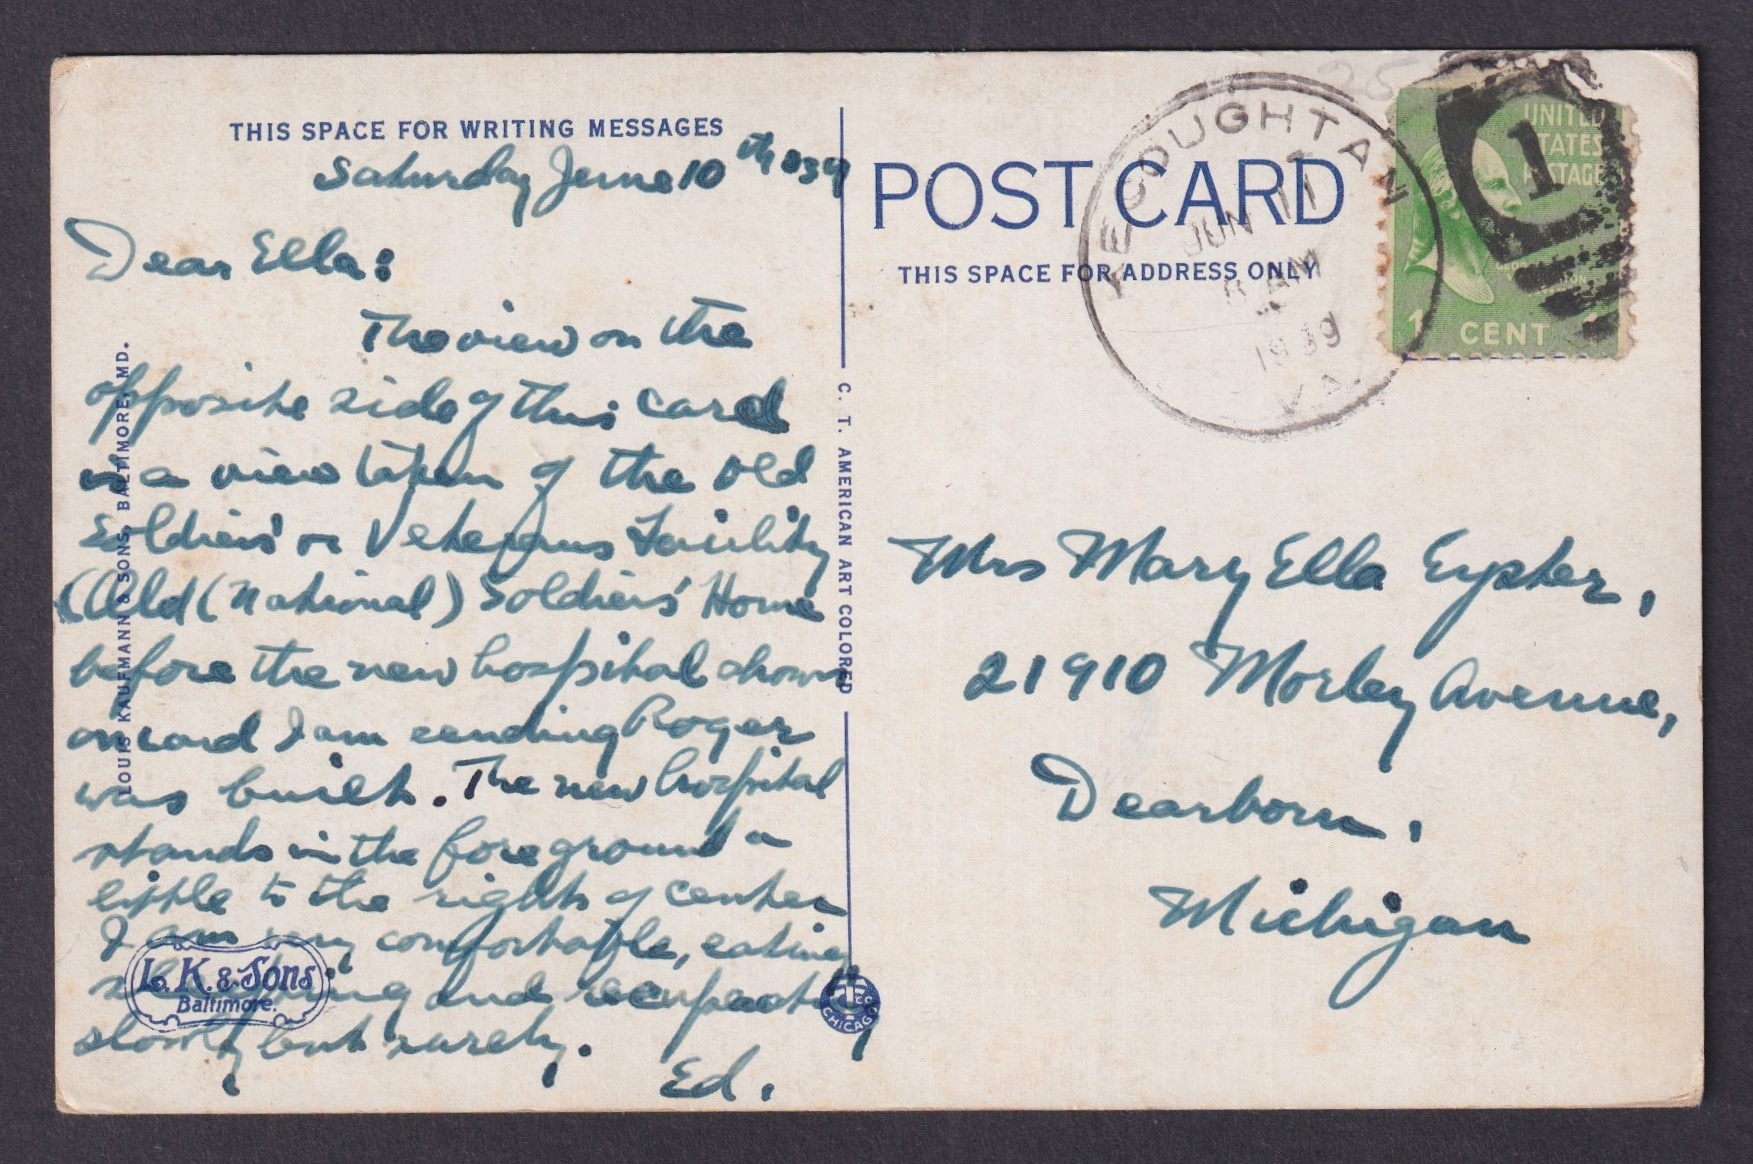 THIS SPACE FOR WRITING MESSAGES
Saturday June 10th 1939
Dear Ella:
The view on the
opposite side of this card
is a view taken of the old
Soldiers' or Veterans Facility
(Old (National) Soldiers' Home
before the new hospital shown
on card I am sending Roger
was built. The new hospital
stands in the foreground a
little to the right of center
I am very comfortable, eating
sleeping and recuperating
slowly but surely.
Ed.
LOUIS KAUFMANN & SONS, BALTIMORE, MD.
L. K. & Sons
Baltimore.
C. T. AMERICAN ART COLORED
CHICAGO
POST CARD
THIS SPACE FOR ADDRESS ONLY
KECOUGHTAN
JUN 11
AM
1939
VA.
1
UNITED
STATES
POSTAGE
1 CENT
Mrs Mary Ella Eyster,
21910 Morley Avenue,
Dearborn,
Michigan